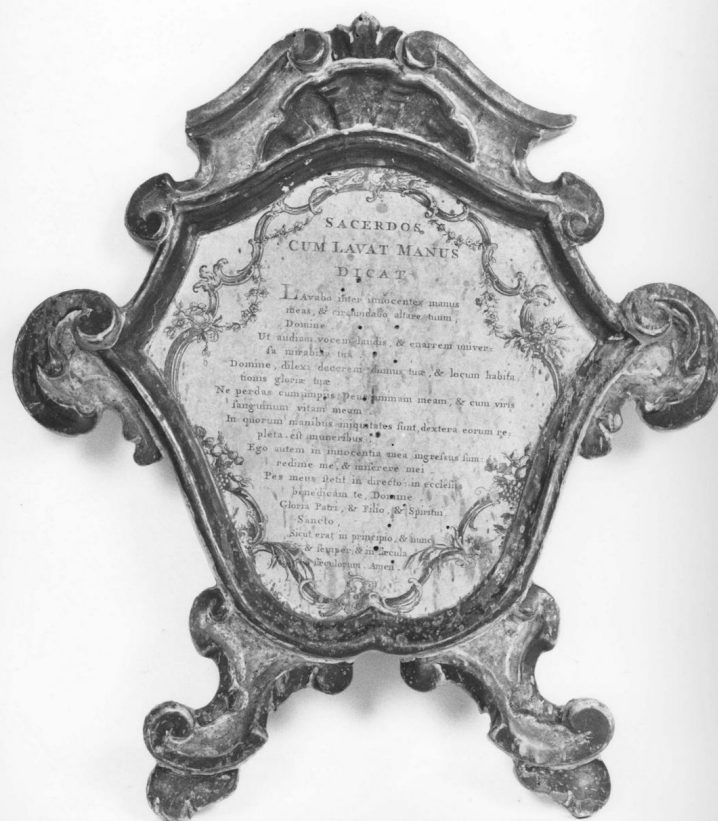 SACERDOS,
CUM LAVAT MANUS
DICAT.
LAvabo inter innocentes manus
meas, & circumdabo altare tuum,
Domine
Ut audiam vocem laudis, & enarrem univer
sa mirabilia tua
Domine, dilexi decorem domus tuæ, & locum habita
tionis gloriæ tuæ
Ne perdas cum impiis Deus animam meam, & cum viris
sanguinum vitam meam
In quorum manibus iniquitates sunt, dextera eorum re
pleta est muneribus
Ego autem in innocentia mea ingressus sum
redime me, & miserere mei
Pes meus stetit in directo in ecclesiis
benedicam te, Domine
Gloria Patri, & Filio, & Spiritui
Sancto
Sicut erat in principio, & nunc
& semper, & in sæcula
sæculorum. Amen.